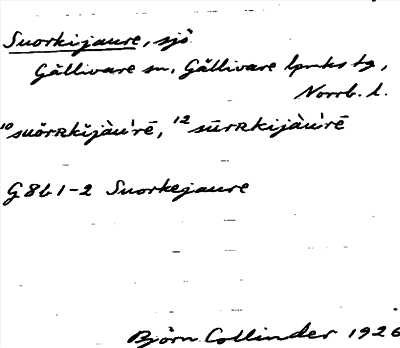 Suorkijaure, sjö.
Gällivare sn, Gällivare lpmks tg,
Norrb. l.
¹⁰suŏrʀkĭjàu'rē, ¹²sūrʀkijàu'rē
G8b1-2 Suorkejaure
Björn Collinder 1926